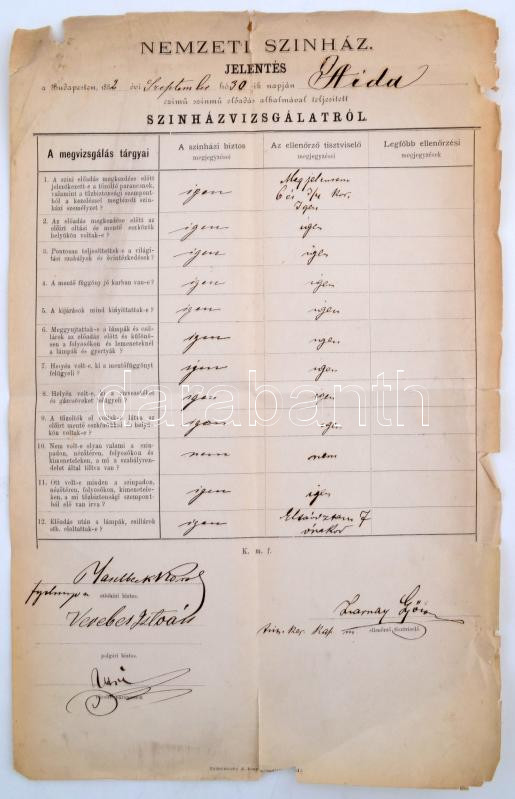 NEMZETI SZINHÁZ.
JELENTÉS
a Budapesten, 1882 évi Szeptember hó 30 ik napján Aida
czimü szinmü előadás alkalmával teljesitett
SZINHÁZVIZSGÁLATRÓL.
A megvizsgálás tárgyai
A szinházi biztos megjegyzései
Az ellenőrző tisztviselő megjegyzései
Legfőbb ellenőrzési megjegyzések
1. A szini előadás megkezdése előtt
jelentkezett-e a tűzoltó parancsnok,
valamint a tűzbiztonsági szempont-
ból a kezeléssel megbizott szin-
házi személyzet?
igen
Megjelentem
6 ó 3/4 kor.
Igen
2. Az előadás megkezdése előtt az
előirt oltási és mentő eszközök
helyükön voltak-e?
igen
igen
3. Pontosan teljesittettek-e a világi-
tási szabályok és óvintézkedések?
igen
igen
4. A mentő függöny jó karban van-e?
igen
igen
5. A kijárások mind kinyittattak-e?
igen
igen
6. Meggyujtattak-e a lámpák és csil-
lárok az előadás előtt és különö-
sen a folyosókon és lemeneteknél
a lámpák és gyertyák?
igen
igen
7. Helyén volt-e, ki a mentőfüggönyt
felügyeli?
igen
igen
8. Helyén volt-e, ki a
felügyeli?
igen
igen
9. A tűzoltók el voltak-e látva az
előirt mentő eszközökkel helyü-
kön voltak-e?
igen
igen
10. Nem volt-e olyan valami a szin-
padon, nézőtéren, folyosókon és
kimeneteleken, a mi a szabályren-
delet által tiltva van?
nem
nem
11. Ott volt-e minden a szinpadon,
nézőtéren, folyosókon, kimenetele-
ken, a mi tűzbiztonsági szempont-
ból elő van irva?
igen
igen
12. Előadás után a lámpák, csillárok
stb. eloltattak-e?
igen
7
órakor
K. m. f.
szinházi biztos.
Verebes István
polgári biztos.
ellenőrző tisztviselő
darabanth